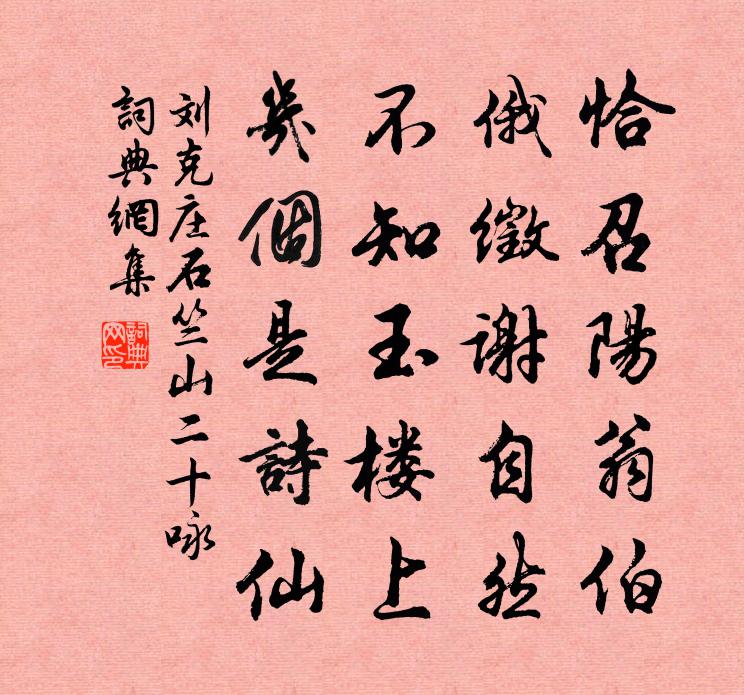 恰召陽翁伯
俄徵謝自然
不知玉楼上
幾個是詩仙
刘克庄石竺山二十咏
詞典網集
詞典网印